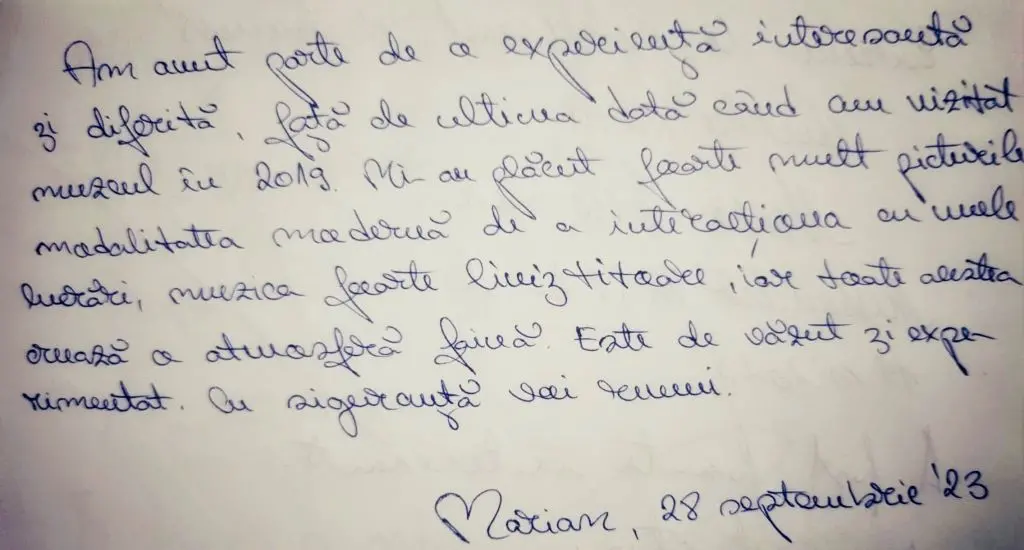 Am avut parte de o experiență interesantă
și diferită, față de ultima dată când am vizitat
muzeul în 2019. Mi-au plăcut foarte mult picturile
modalitatea modernă de a interacționa cu unele
lucrări, muzica foarte liniștitoare, iar toate acestea
crează o atmosferă faină. Este de văzut și expe-
rimentat. Cu siguranță voi reveni.
Marian, 28 septembrie '23